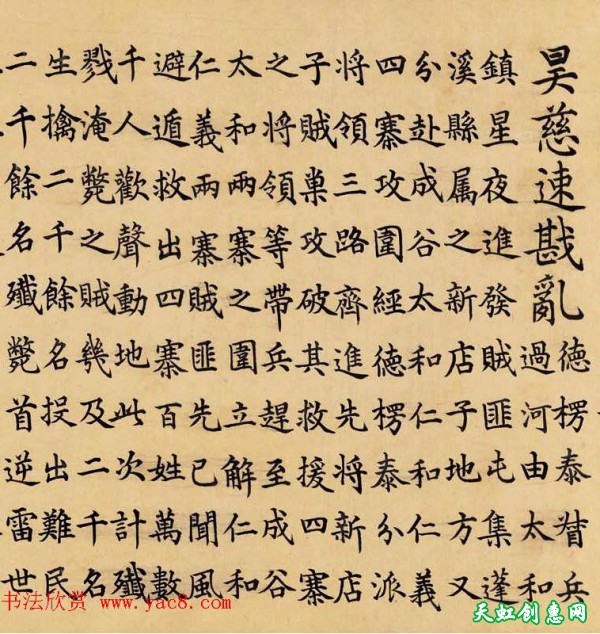 昊慈速戡亂德楞泰督兵
過河由太和
鎮星夜進發賊匪屯集蓬
溪縣属之新店子地方又
分赴成谷太和仁和仁義
四寨攻圍經德楞泰分派
將領三路齊進先將新店
子賊巢攻破其救援四寨
之將領等帶兵趕至成谷
太和兩寨之圍立解仁和
仁義兩寨賊匪先已聞風
避遁救出四寨百姓萬數
千人歡聲動地此次計殲
戮淹斃之賊幾及二千名
生擒二千餘名投出難民
二千餘名殲斃首逆雷世
书法欣赏 www.yac8.com
天虹创惠网